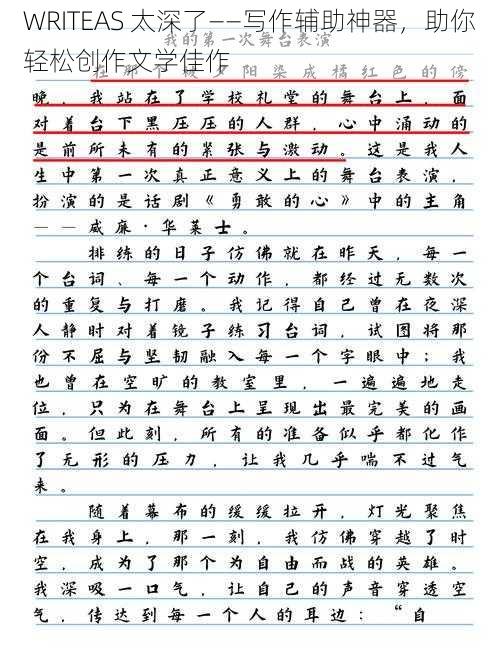 WRITEAS 太深了——写作辅助神器，助你
轻松创作文学佳作
我的第一次舞台表演
在那个被夕阳染成橘红色的傍
晚，我站在了学校礼堂的舞台上，面
对着台下黑压压的人群，心中涌动的
是前所未有的紧张与激动。这是我人
生中第一次真正意义上的舞台表演，
扮演的是话剧《勇敢的心》中的主角
——威廉·华莱士。
排练的日子仿佛就在昨天，每一
个台词、每一个动作，都经过无数次
的重复与打磨。我记得自己曾在夜深
人静时对着镜子练习台词，试图将那
份不屈与坚韧融入每一个字眼中；我
也曾在空旷的教室里，一遍遍地走
位，只为在舞台上呈现出最完美的画
面。但此刻，所有的准备似乎都化作
了无形的压力，让我几乎喘不过气
来。
随着幕布的缓缓拉开，灯光聚焦
在我身上，那一刻，我仿佛穿越了时
空，成为了那个为自由而战的英雄。
我深吸一口气，让自己的声音穿透空
气，传达到每一个人的耳边：“自